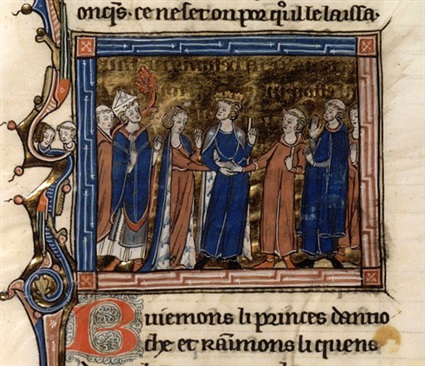 onq̃s. ce ne set on por qͥl le laissa.
Buiemons li princes dantio
che et Raimons li quens